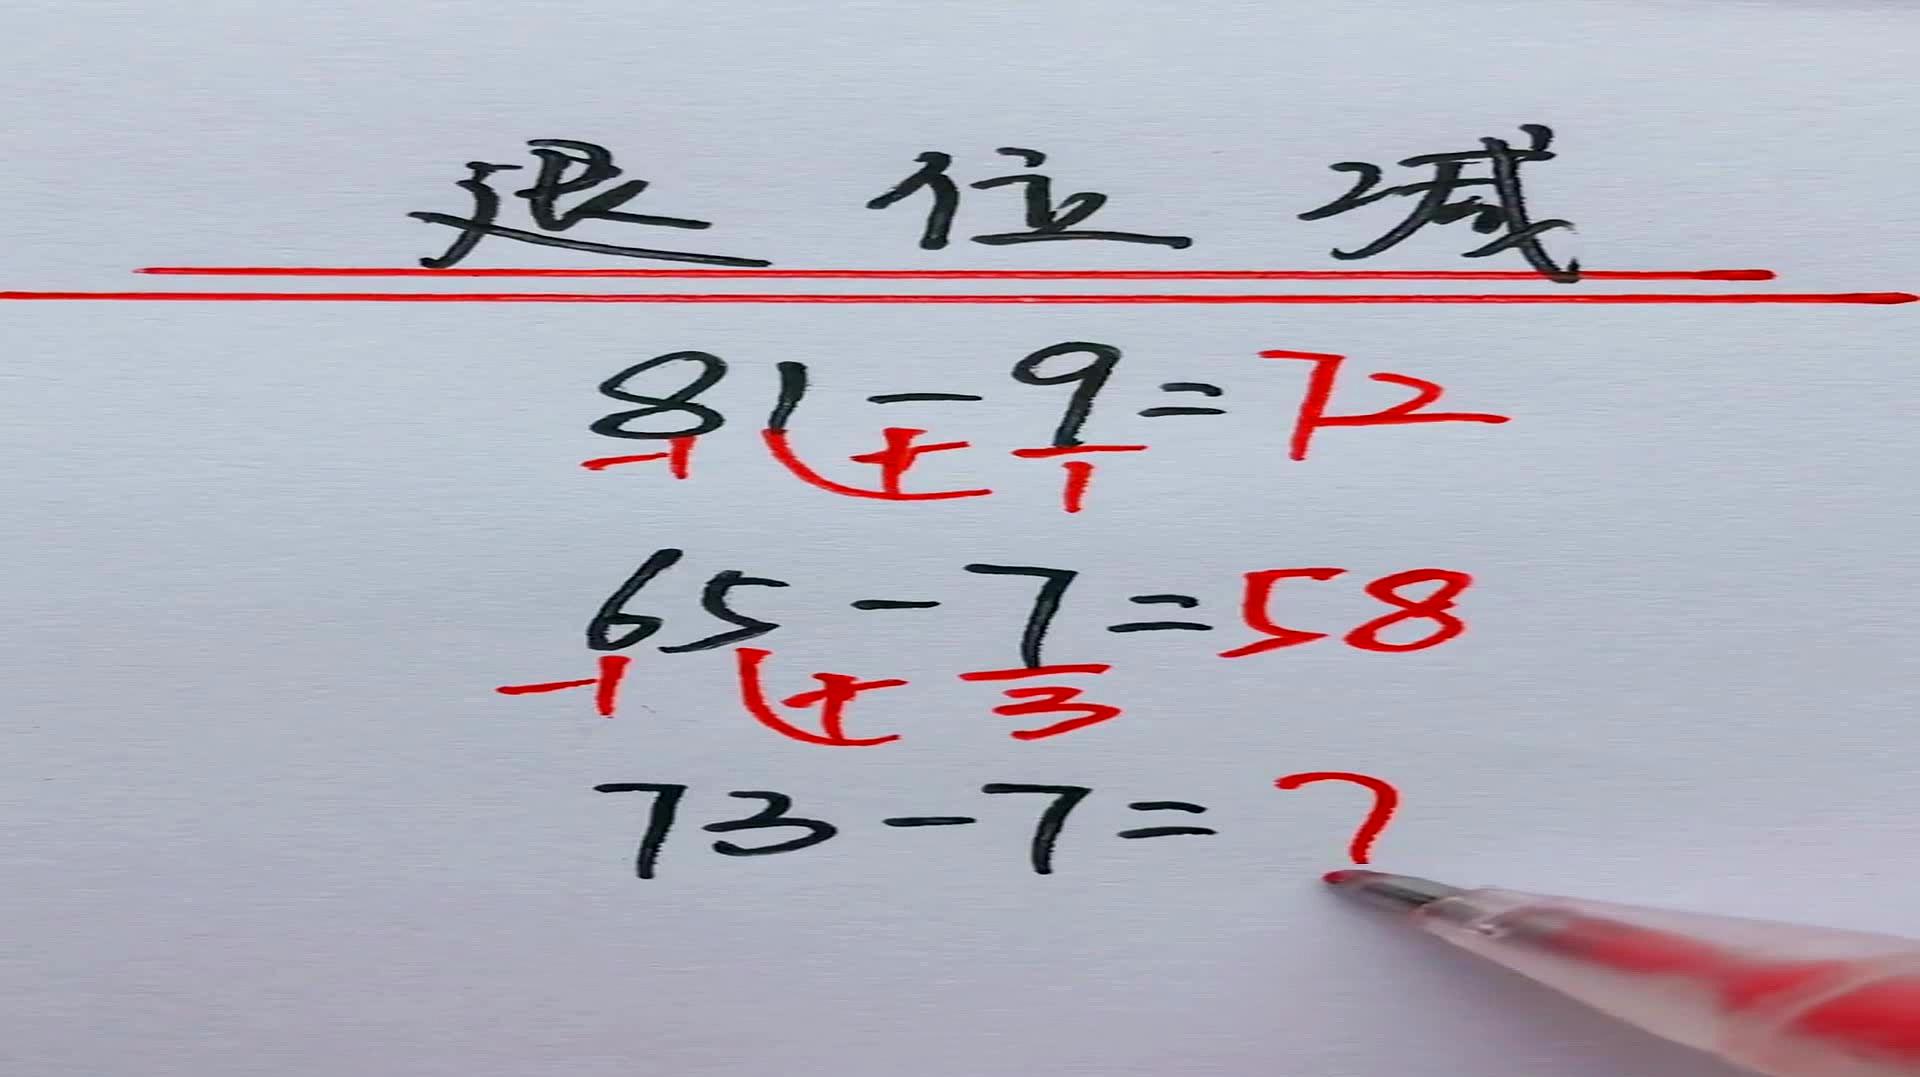 退位减
81-9=72
-1 + 1
65-7=58
-1 + 3
73-7=?